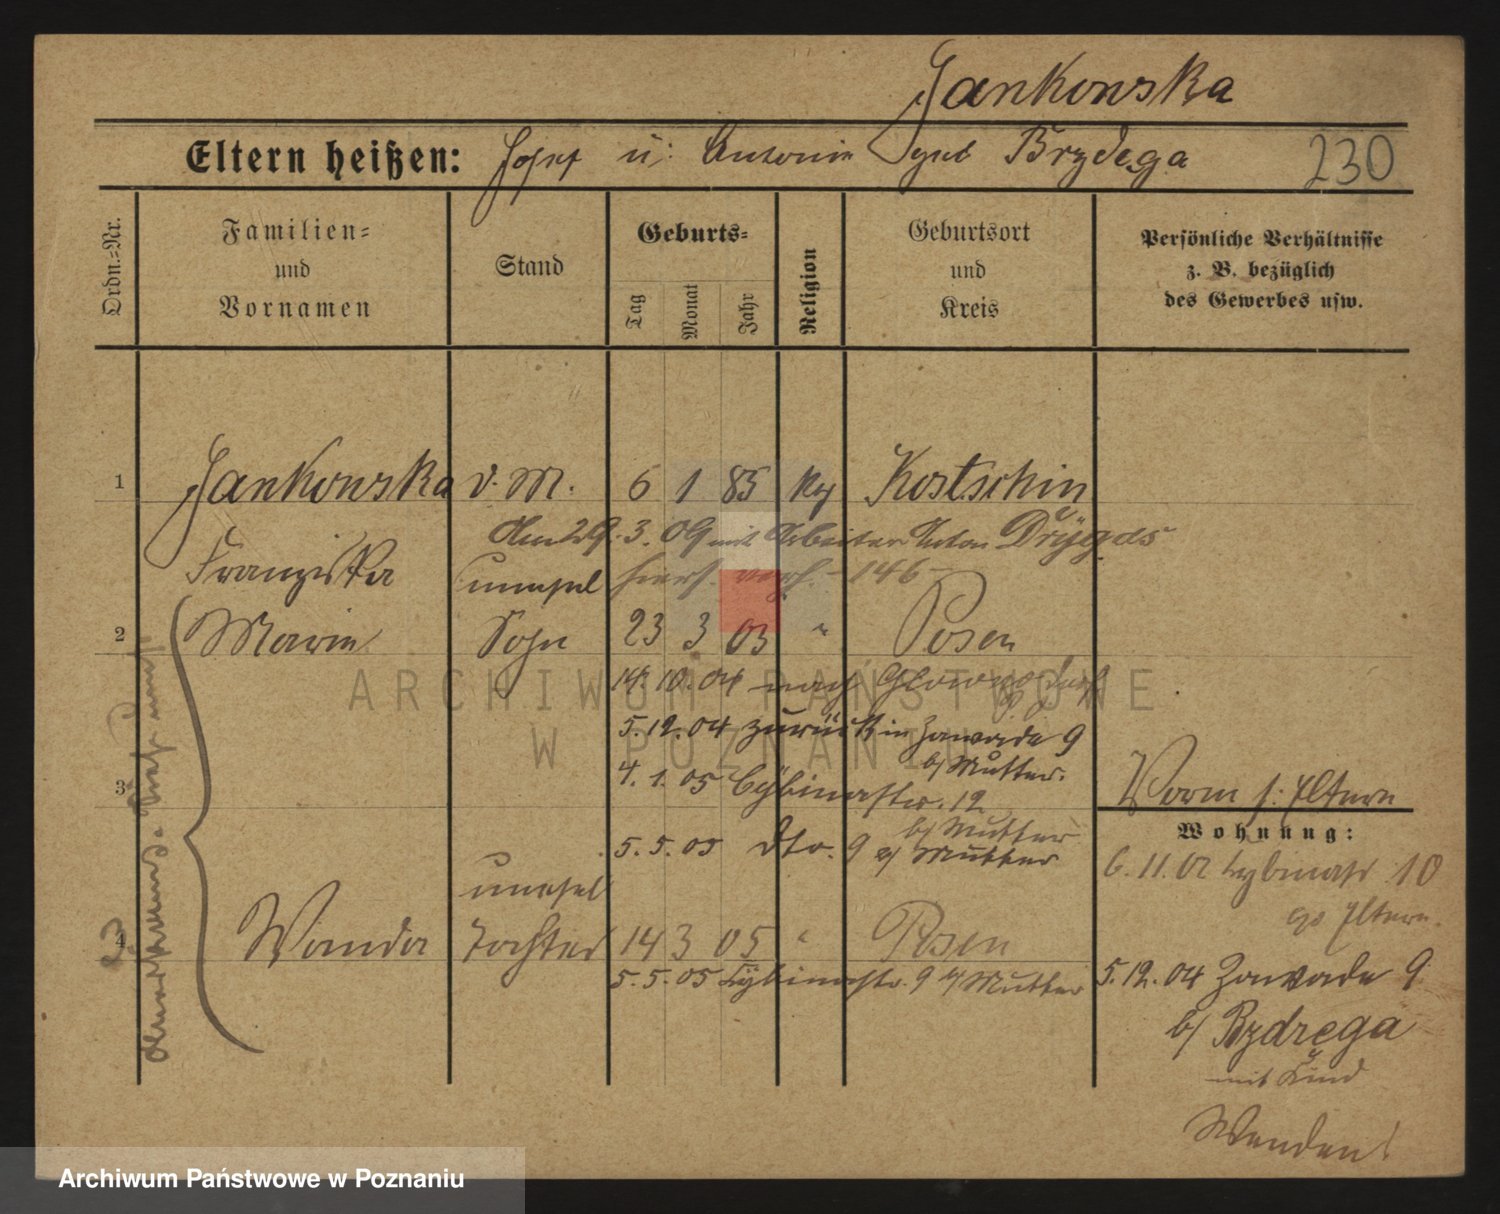 Jankowska
Eltern heißen: Josef u: Antonie Brzdega
230
Ordn.-Nr.
Familien-
und
Vornamen
Stand
Geburts-
Tag
Monat
Jahr
Religion
Geburtsort
und
Kreis
Persönliche Verhältnisse
z. B. bezüglich
des Gewerbes usw.
1 Jankowska d. M. 6 1 85 Kostschin
29.3.09 mit Arbeiter Anton
Franziska unehel 146
2 Marin Sohn 23 3 03 " Posen
14.10.04 nach
5.12.04 zurück in Zawade 9
b/ Mutter.
3
4.1.05 Cybinastr. 12
b/ Mutter
Worm s: Eltern
Wohnung:
5.5.05 dto. 9 b/ Mutter
6.11.02 Cybinastr 10
Eltern.
unehel
4 Wanda Tochter 14 3 05 " Posen
5.5.05 Cybinastr. 9 b/ Mutter
5.12.04 Zawade 9
b/ Bzdrega
mit Kind
Wenden!
ARCHIWUM PAŃSTWOWE
W POZNANIU
Archiwum Państwowe w Poznaniu